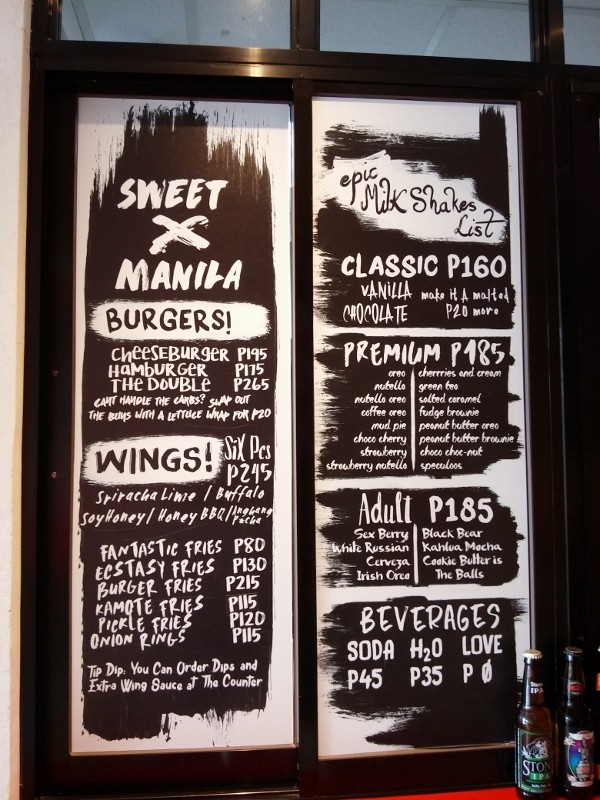 SWEET
X
MANILA
BURGERS!
CHEESEBURGER P195
HAMBURGER P175
THE DOUBLE P265
CAN'T HANDLE THE CARBS? SWAP OUT
THE BUNS WITH A LETTUCE WRAP FOR P20
WINGS! Six Pcs
P245
Sriracha Lime / Buffalo
Soy Honey / Honey BBQ / Anghang
FANTASTIC FRIES P80
ECSTASY FRIES P130
BURGER FRIES P215
KAMOTE FRIES P115
PICKLE FRIES P120
ONION RINGS P115
Tip Dip: You Can Order Dips and
Extra Wing Sauce at The Counter
epic
Milk Shakes
List
CLASSIC P160
VANILLA make it A malted
CHOCOLATE P20 more
PREMIUM P185
oreo cherrries and cream
nutella green tea
nutella oreo salted caramel
coffee oreo fudge brownie
mud pie peanut butter oreo
choco cherry peanut butter brownie
strawberry choco choc-nut
strawberry nutella speculoos
Adult P185
Sex Berry Black Bear
White Russian Kahlua Mocha
Cerveza Cookie Butter is
Irish Oreo The Balls
BEVERAGES
SODA H2O LOVE
P45 P35 P Ø
IPA
STONE
IPA